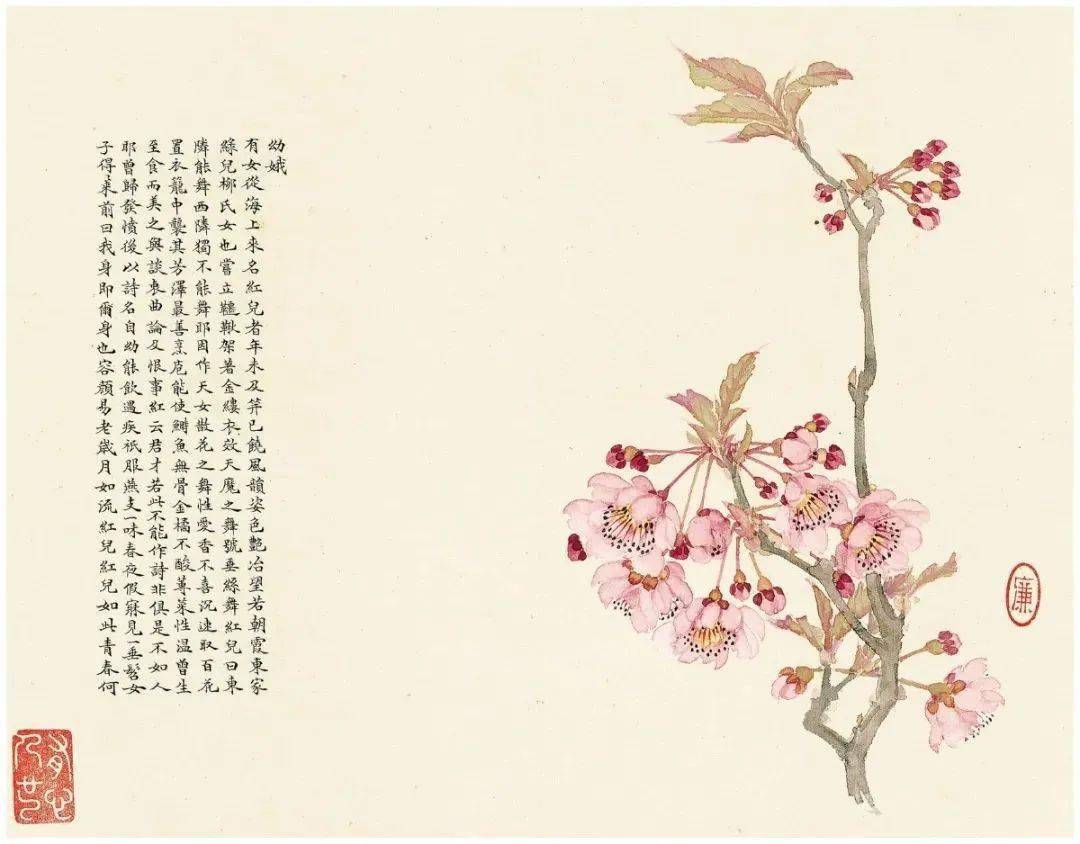 幼娥
有女從海上來名紅兒者年未及笄已饒風韻姿色艷冶望若朝霞東家
綠兒柳氏女也嘗立鞦架著金縷衣效天魔之舞號垂絲舞紅兒曰東
隣能舞西隣獨不能舞耶因作天女散花之舞性愛香不喜沉速取百花
置衣籠中襲其芳澤最善烹庖能使鰣魚無骨金橘不酸蓴菜性溫曾生
至食而美之與談衷曲論及恨事紅云君才若此不能作詩非俱是不如人
耶曾歸發憤後以詩名自幼能飲遇疾祇服燕支一味春夜假寐見一垂髫女
子得菜前曰我身即爾身也容顏易老歲月如流紅兒紅兒如此青春何
廉